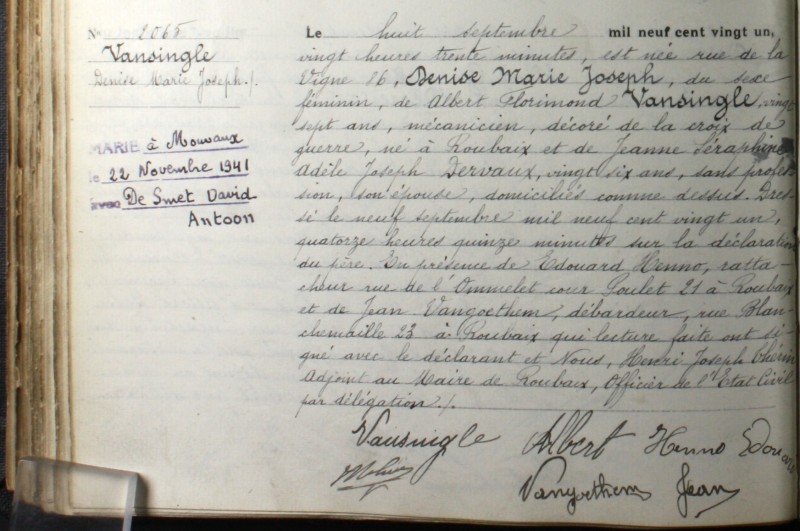 N° 2065
Vansingle
Denise Marie Joseph ./.
MARIE à Mouvaux
le 22 Novembre 1941
avec De Smet David
Antoon
Le huit septembre mil neuf cent vingt un,
vingt heures trente minutes, est née rue de la
Vigne 86, Denise Marie Joseph, du sexe
féminin, de Albert Florimond Vansingle, vingt
sept ans, mécanicien, décoré de la croix de
guerre, né à Roubaix et de Jeanne Séraphine
Adèle Joseph Dervaux, vingt six ans, sans profes-
sion, son épouse, domiciliés comme dessus. Dres-
sé le neuf septembre mil neuf cent vingt un,
quatorze heures quinze minutes sur la déclaration
du père. En présence de Edouard Henno, ratta-
cheur rue de l'Ommelet cour Poulet 21 à Roubaix
et de Jean Vangoethem, débardeur, rue Blan-
chemaille 23 à Roubaix qui lecture faite ont si-
gné avec le déclarant et Nous, Henri Joseph Thérin
Adjoint au Maire de Roubaix, Officier de l'Etat Civil
par délégation ./.
Vansingle Albert Henno Edouard
Vangoethem Jean